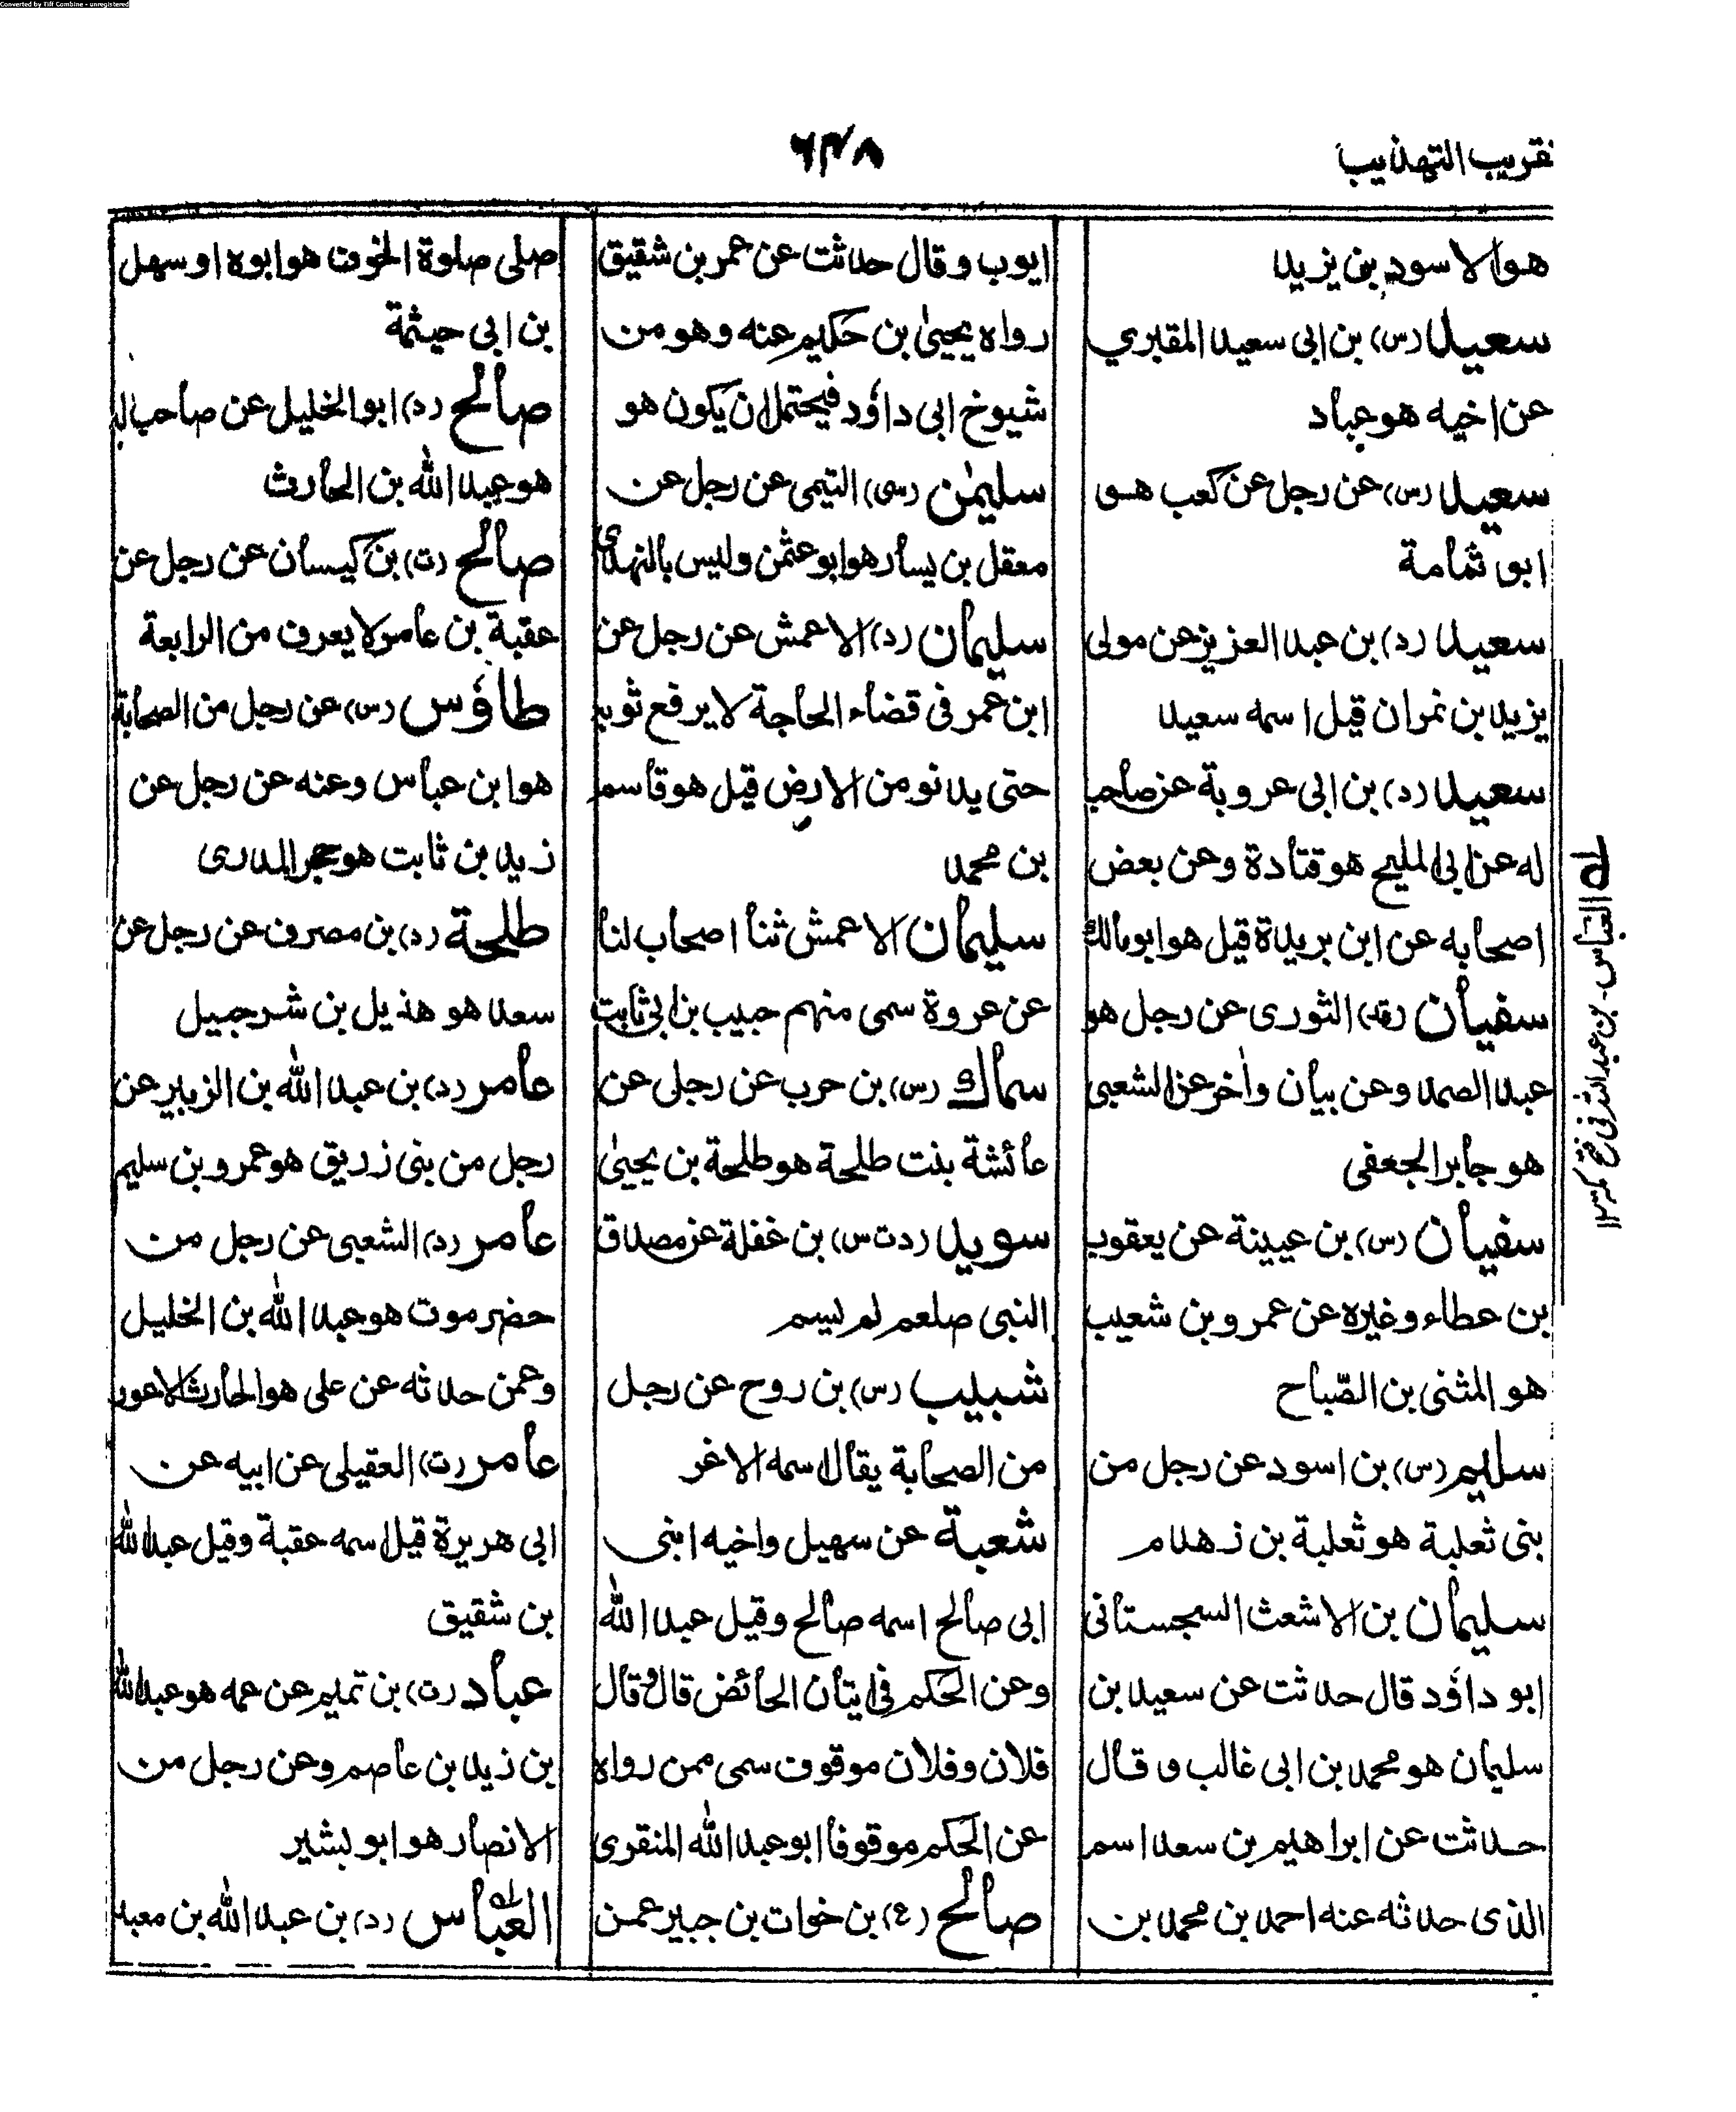 Converted by Tiff Combine - unregistered
تقريب التهذيب
٦٤٨
هو الاسود بن يزيد
سعيد (س) بن ابى سعيد المقبري
عن اخيه هو عباد
سعيد (س) عن رجل عن كعب هو
ابو ثمامة
سعيد (د) بن عبد العزيز عن مولى
يزيد بن نمران قيل اسمه سعيد
سعيد (د) بن ابى عروبة عن صاحب
له عن ابى المليح هو قتادة وعن بعض
اصحابه عن ابن بريدة قيل هو ابو مالك
سفيان (قد) الثورى عن رجل هو
عبد الصمد وعن بيان وأخر عن الشعبى
هو جابر الجعفى
سفيان (س) بن عيينة عن يعقوب
بن عطاء وغيره عن عمرو بن شعيب
هو المثنى بن الصّباح
سليم (س) بن اسود عن رجل من
بنى ثعلبة هو ثعلبة بن زهدم
سليمان بن الاشعث السجستانى
ابو داؤد قال حدثت عن سعيد بن
سليمان هو محمد بن ابى غالب وقال
حدثت عن ابراهيم بن سعد اسم
الذى حدثه عنه احمد بن محمد بن
ايوب وقال حدثت عن عمر بن شقيق
رواه يحيىٰ بن حكيم عنه وهو من
شيوخ ابى داؤد فيحتمل ان يكون هو
سليمٰن (سى) التيمى عن رجل عن
معقل بن يسار هو ابو عثمٰن وليس بالنهدى
سليمان (د) الاعمش عن رجل عن
ابن عمر فى قضاء الحاجة لا يرفع ثوبه
حتى يدنو من الارض قيل هو قاسم
بن محمد
سليمان الاعمش ثنا اصحاب لنا
عن عروة سمى منهم حبيب بن ابى ثابت
سماك (س) بن حرب عن رجل عن
عائشة بنت طلحة هو طلحة بن يحيىٰ
سويد (د ت س) بن غفلة عن مصدق
النبى صلعم لم يسم
شبيب (س) بن روح عن رجل
من الصحابة يقال اسمه الاغر
شعبة عن سهيل واخيه ابنى
ابى صالح اسمه صالح وقيل عبد الله
وعن الحكم فى ايتان الحائض قال وقال
فلان وفلان موقوف سمى ممن رواه
عن الحكم موقوفا ابو عبد الله المنقرى
صالح (ع) بن خوات بن جبير عمن
صلى صلوة الخوف هو ابوه او سهل
بن ابى حيثمة
صالح (د) ابو الخليل عن صاحب له
هو عبد الله بن الحارث
صالح (ت) بن كيسان عن رجل عن
عقبة بن عامر لا يعرف من الرابعة
طاؤس (س) عن رجل من الصحابة
هو ابن عباس وعنه عن رجل عن
زيد بن ثابت هو حجر المدرى
طلحة (د) بن مصرف عن رجل عن
سعد هو هذيل بن شرحبيل
عامر (د) بن عبد الله بن الزبير عن
رجل من بنى زريق هو عمرو بن سليم
عامر (د) الشعبى عن رجل من
حضرموت هو عبد الله بن الخليل
وعمن حدثه عن على هو الحارث الاعور
عامر (ت) العقيلى عن ابيه عن
ابى هريرة قيل اسمه عقبة وقيل عبد الله
بن شقيق
عباد (ت) بن تميم عن عمه هو عبد الله
بن زيد بن عاصم وعن رجل من
الانصار هو ابو بشير
العباس (د) بن عبد الله بن معبد
العباس - بن عبد الله فى فتح مكة ١٢